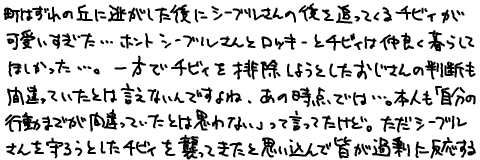 町はずれの丘に逃がした後にシーブルさんの後を追ってくるチビィが
可愛いすぎた…ホントシーブルさんとロッキーとチビィは仲良く暮らして
ほしかった…。一方でチビィを排除しようとしたおじさんの判断も
間違っていたとは言えないんですよね、あの時点では…。本人も「自分の
行動までが間違っていたとは思わない」って言ってたけど。ただシーブル
さんを守ろうとしたチビィを襲ってきたと思い込んで皆が過剰に反応する